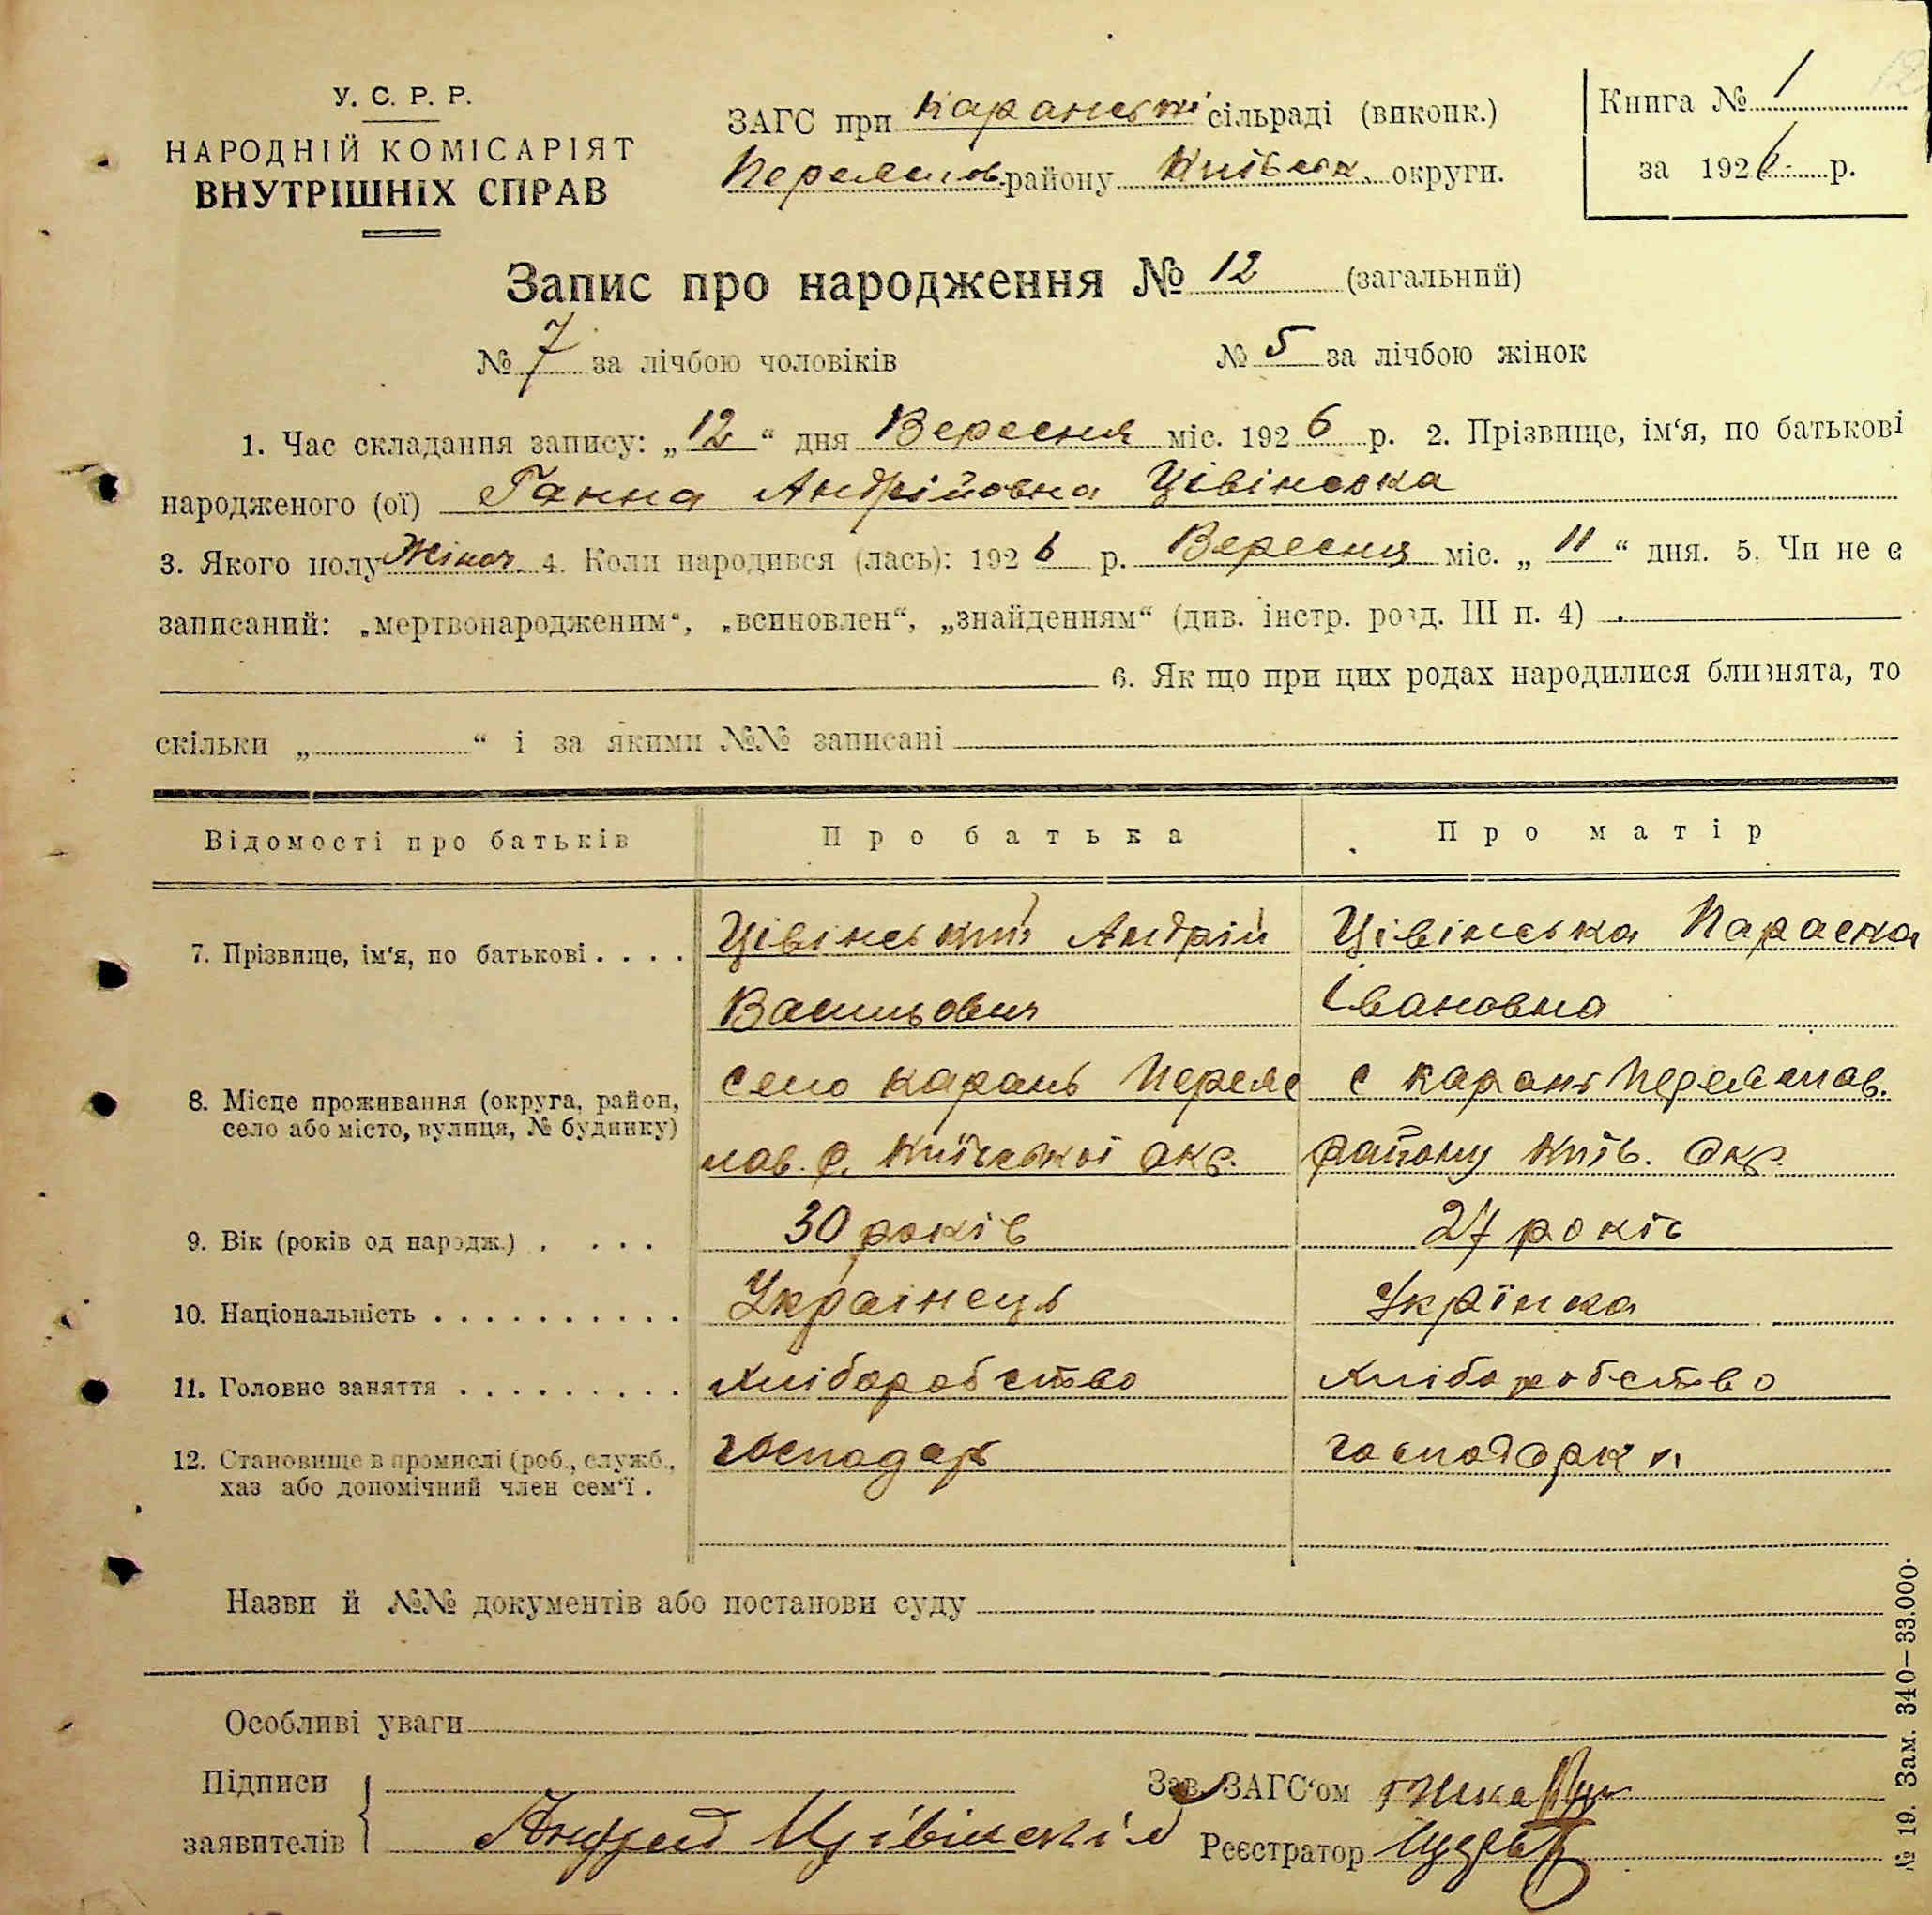 У. С. Р. Р.
НАРОДНІЙ КОМІСАРІЯТ
ВНУТРІШНІХ СПРАВ
ЗАГС при Караньскі сільраді (виконк.)
Переяслов. району Київськ. округи.
Книга № 1
за 1926 р.
Запис про народження № 12 (загальний)
№ 7 за лічбою чоловіків № 5 за лічбою жінок
1. Час складання запису: „12“ дня Вересня міс. 1926 р. 2. Прізвище, ім‘я, по батькові
народженого (ої) Ганна Андрійовна Цівінська
3. Якого полу Жіноч. 4. Коли народився (лась): 1926 р. Вересня міс. „11“ дня. 5. Чи не є
записаний: „мертвонародженим“, „всиновлен“, „знайденням“ (див. інстр. розд. III п. 4)
6. Як що при цих родах народилися близнята, то
скільки „ “ і за якими №№ записані
Відомості про батьків Про батька Про матір
7. Прізвище, ім‘я, по батькові . . . . Цівінський Андрій Цівінська Параска
Васильович Івановна
8. Місце проживання (округа, район, село Карань Переяс с Карань Переяслав.
село або місто, вулиця, № будинку)
лав. р. Київської окр. району Київ. Окр.
9. Вік (років од народж.) . . . . 30 років 27 років
10. Національність . . . . . . . . . . Українець Українка
11. Головне заняття . . . . . . . . . Хліборобство Хліборобство
12. Становище в промислі (роб., служб., господар господарка
хаз або допомічний член сем‘ї .
Назви й №№ документів або постанови суду
Особливі уваги
Підписи
заявителів
Андрей Цівінскій
Зав. ЗАГС‘ом
Реєстратор
№ 19. Зам. 340—33.000.